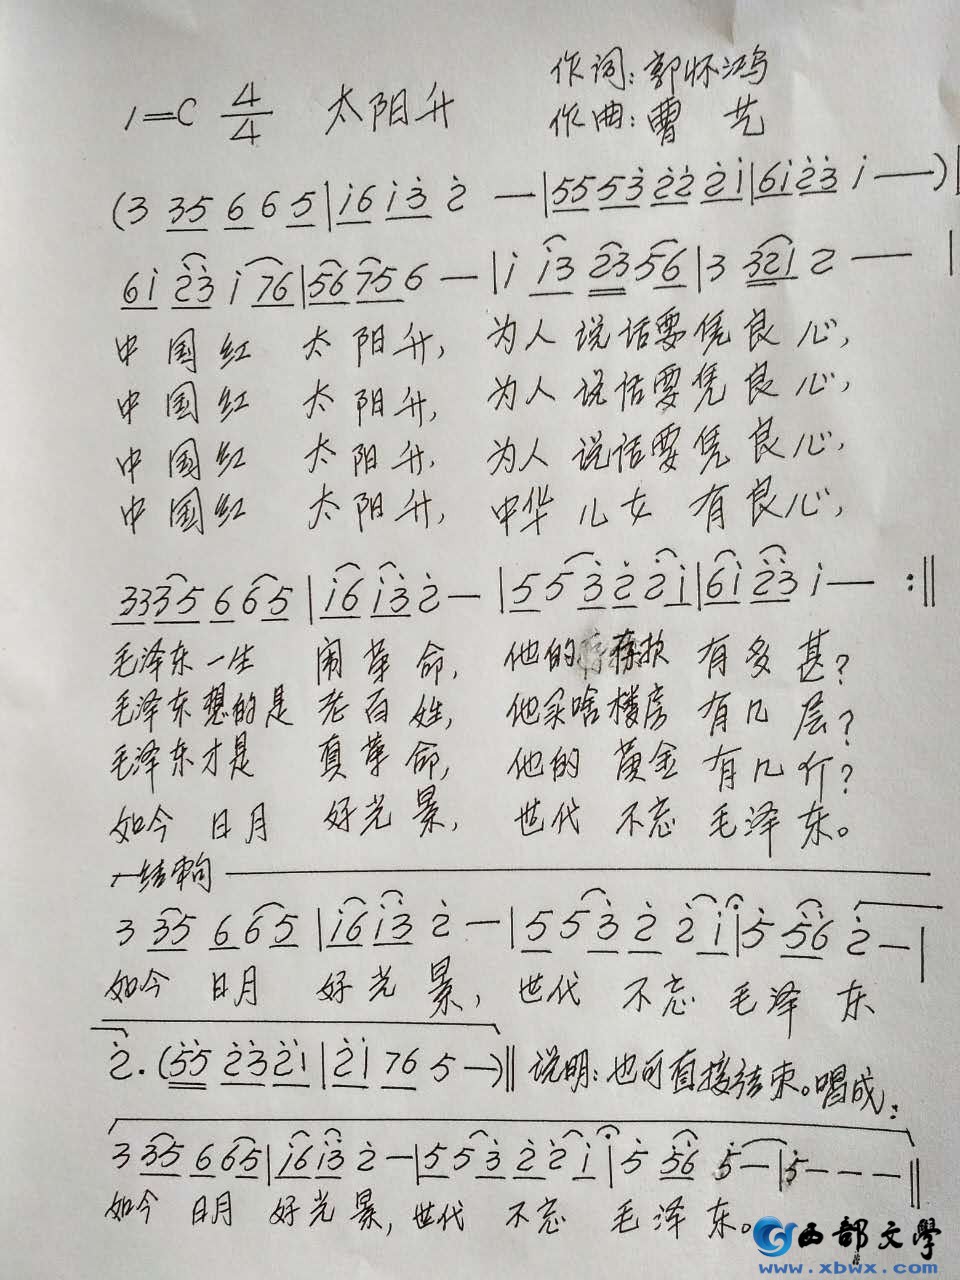 作词:郭怀鸿
1=C 4/4 太阳升
作曲:曹艺
(3 35 6 6 5|i6 i3 2 —|55 53 22 2i|6i23 i —)|
6i 23 i 76|56 75 6 —|i i3 23 56|3 321 2 — |
中国红 太阳升, 为人说话要凭良心,
中国红 太阳升, 为人说话要凭良心,
中国红 太阳升, 为人说话要凭良心,
中国红 太阳升, 中华儿女有良心,
3335 6 65|i6 i3 2—|5 5 3 2 2i|6i 23 i— :||
毛泽东一生 闹革命, 他的存款 有多甚?
毛泽东想的是 老百姓, 他买啥楼房 有几层?
毛泽东才是 真革命, 他的 黄金 有几斤?
如今 日月 好光景, 世代 不忘 毛泽东。
结束句
3 35 6 65|i6 i3 2 —|5 5 3 2 2 i|5 56 2—|
如今 日月 好光景, 世代 不忘 毛泽东
2.(55 23 2i|2i 76 5 —)|| 说明:也可直接结束。唱成:
3 35 6 65|i6 i3 2 —|5 5 3 2 2 i|5 56 5—|5———||
如今 日月 好光景, 世代 不忘 毛泽东。
西部文學
www.xbwx.com